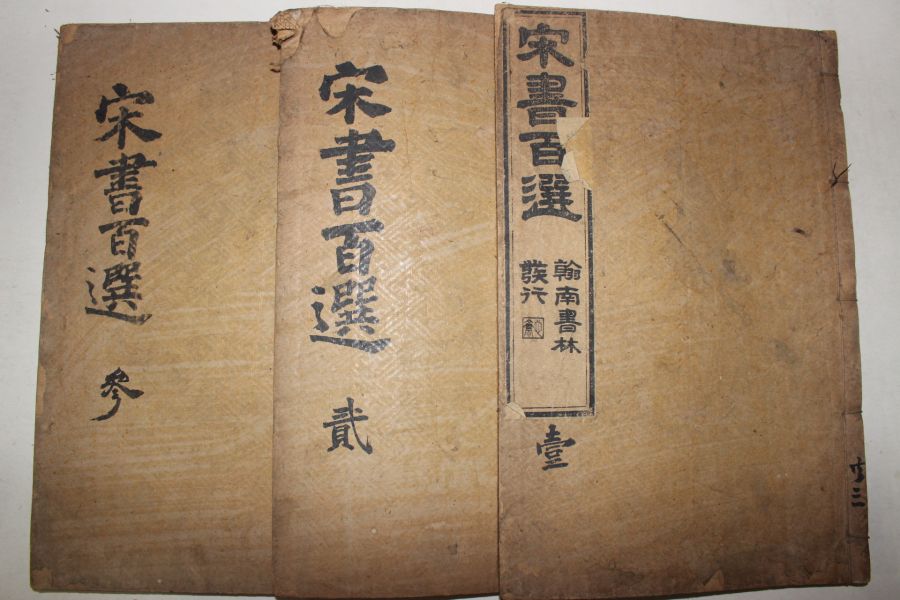 宋書百選
翰南書林
發行
壹
宋書百選
貳
宋書百選
參
共三